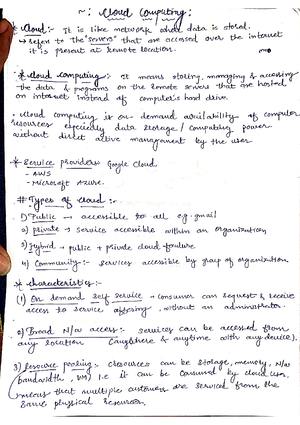 ~: Cloud Computing :~
* Cloud :- It is like network where data is stored.
↳ refer to the "servers" that are accessed over the internet
it is present at remote location.
* Cloud computing :- It means storing, managing & accessing
the data & programs on the remote servers that are hosted
on internet instead of computer's hard drive.
• Cloud computing is on-demand availability of computer
resources especially data storage / computing power
without direct active management by the user
* Service providers: Google Cloud,
- AWS
- Microsoft Azure.
# Types of cloud :-
1) Public - accessible to all eg. gmail
2) private - service accessible within an organization
3) Hybrid - public + private cloud feature
4) Community :- services accessible by group of organization
* characteristics :-
(1) On demand self service - Consumer can request & receive
access to service offering, without an administrator.
2) Broad N/w access :- services can be accessed from
any location (anywhere & anytime with any device).
3) Resource pooling :- (resources can be storage, memory, N/w
bandwidth, VM) i.e it can be consumed by cloud user,
means that multiple customers are serviced from the
same physical resources.